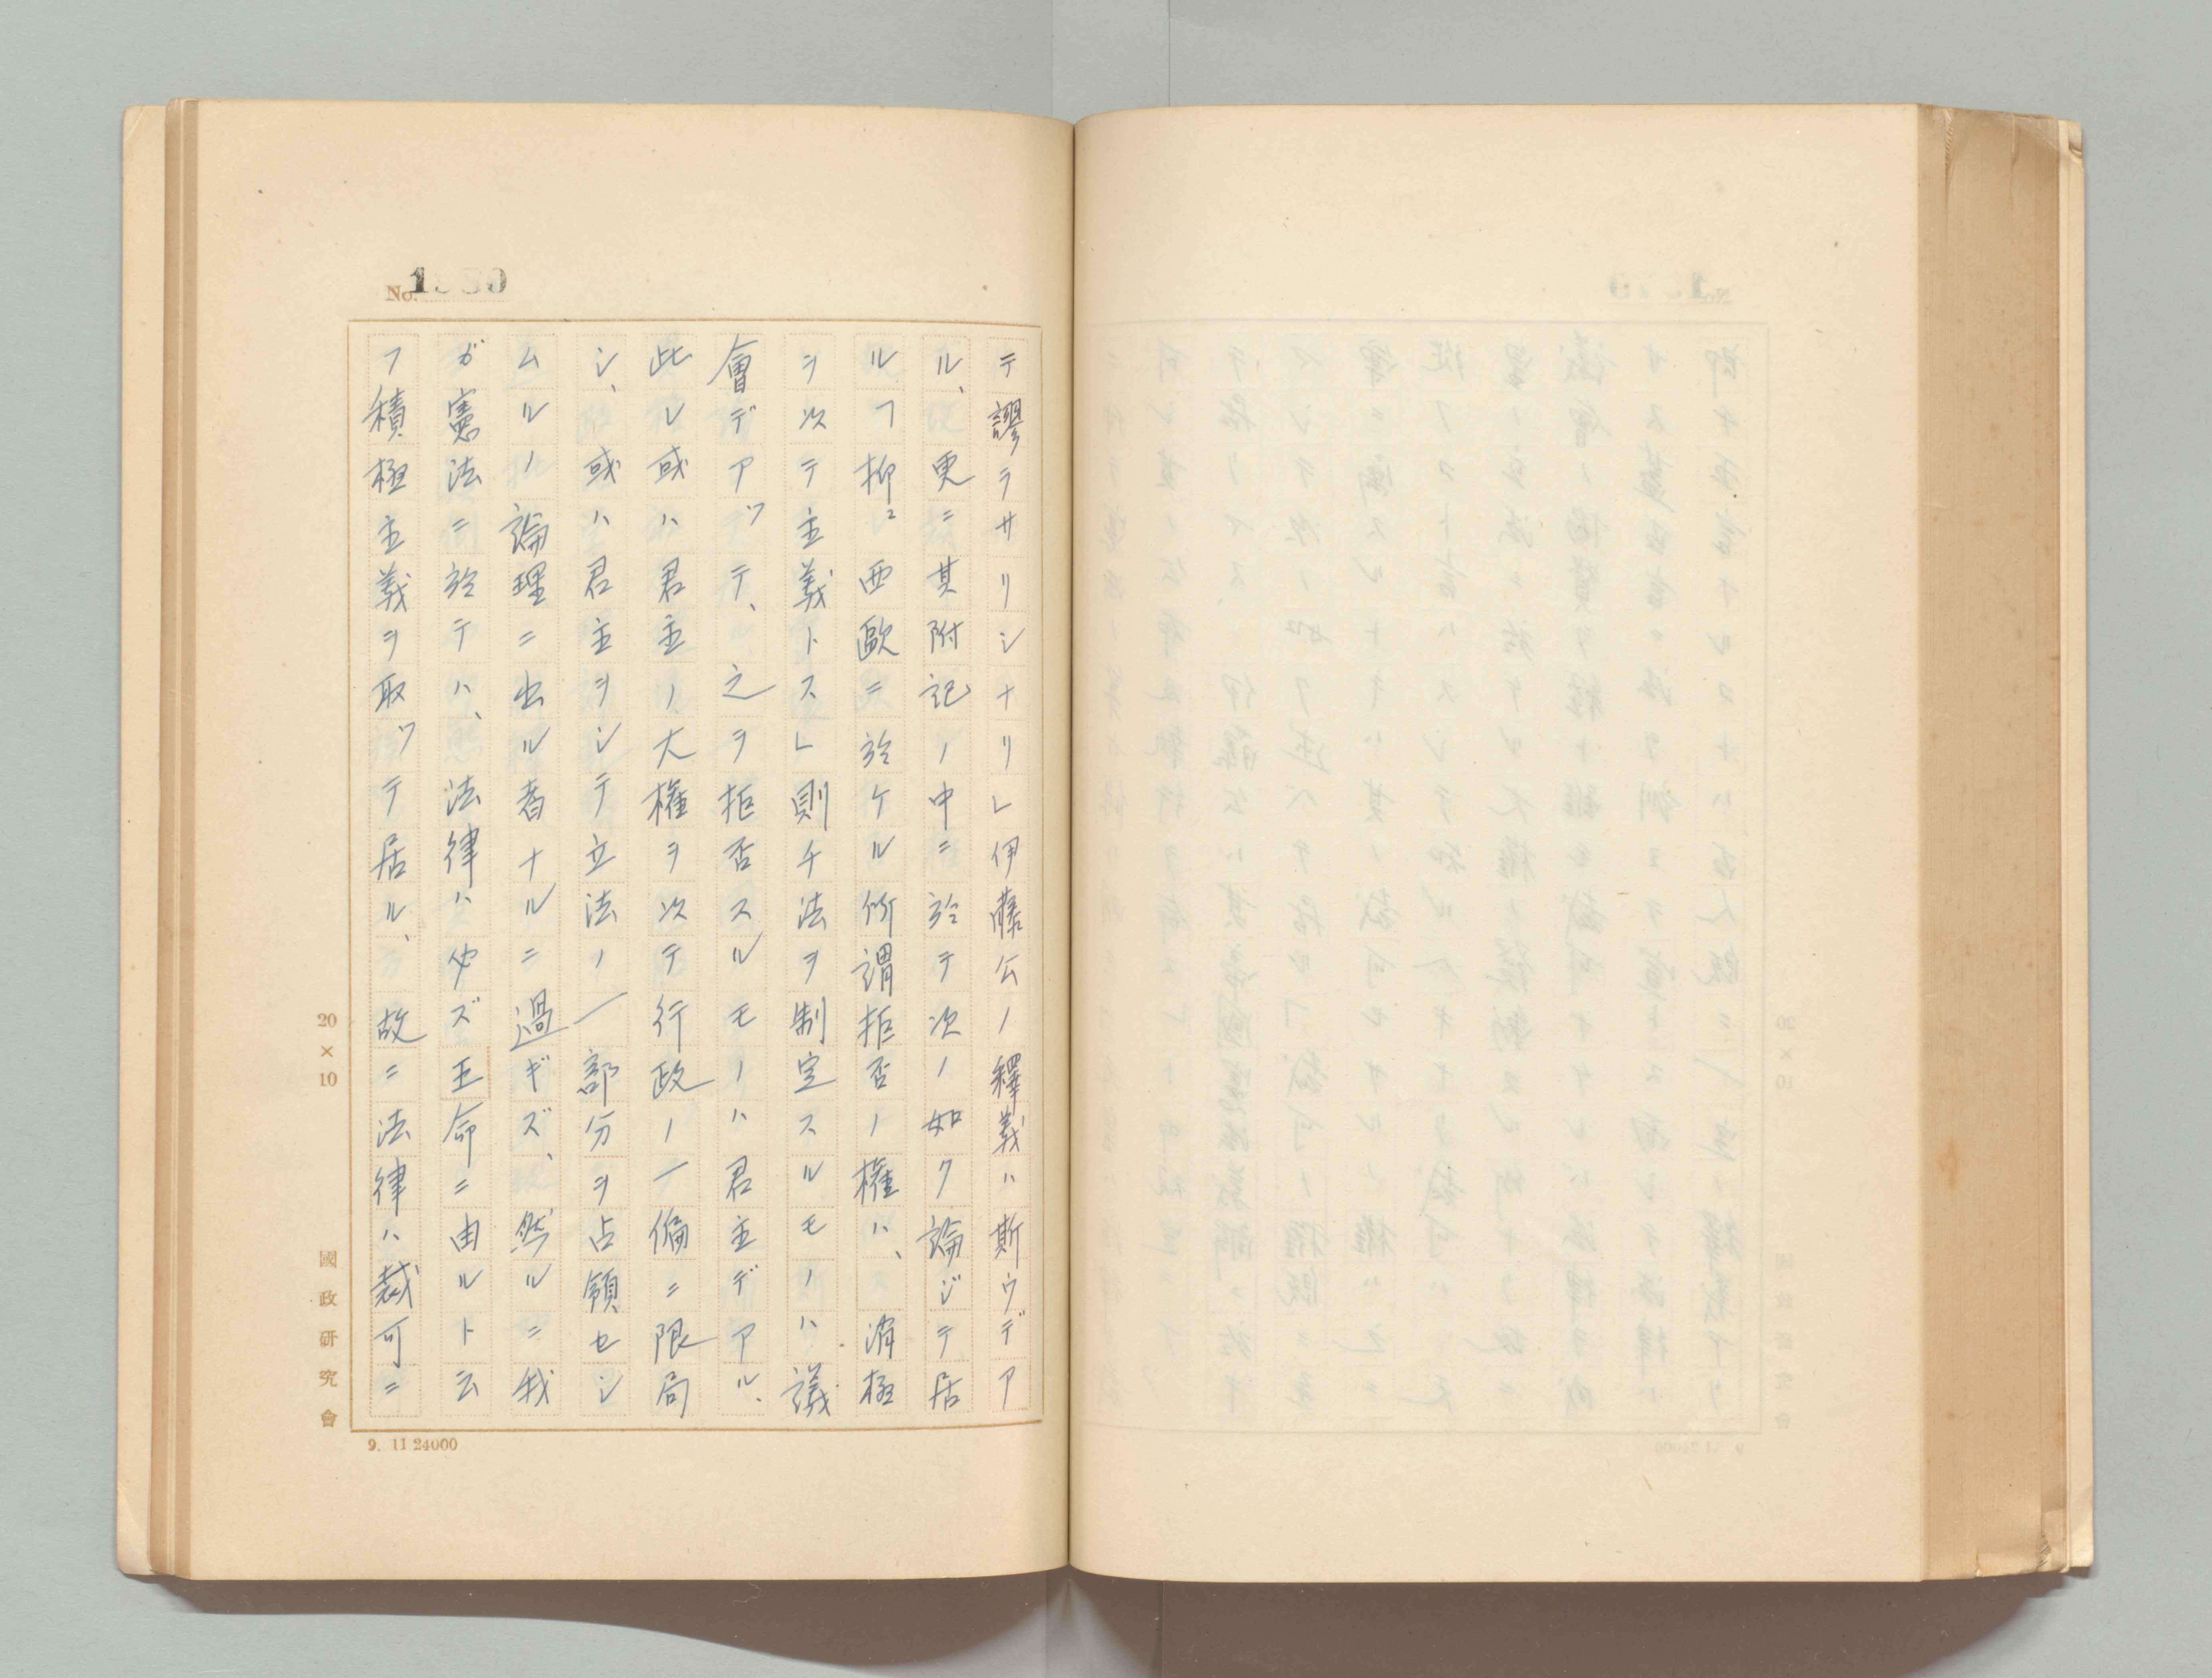 No.
テ謬ラサリシナリレ伊藤公ノ釋義ハ斯ウデア
ル、更ニ其附記ノ中ニ於テ次ノ如ク論ジテ居
ルフ抑〻西歐ニ於ケル所謂拒否ノ權ハ、消極
ヲ次テ主義トスレ則チ法ヲ制定スルモノハ議
會デアッテ、之ヲ拒否スルモノハ君主デアル、
此レ或ハ君主ノ大權ヲ次テ行政ノ一偏ニ限局
シ、或ハ君主ヲシテ立法ノ一部分ヲ占領セシ
ムルノ論理ニ出ル者ナルニ過ギズ、然ルニ我
ガ憲法ニ於テハ、法律ハ必ズ王命ニ由ルト云
フ積極主義ヲ取ッテ居ル、故ニ法律ハ裁可ニ
20×10
國政研究會
9. 11 24000